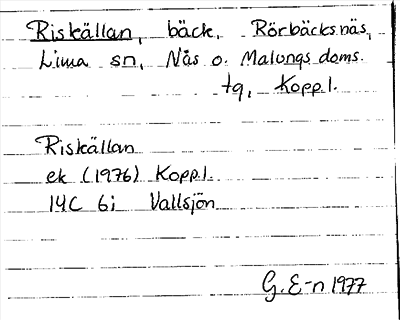 Riskällan, bäck, Rörbäcksnäs,
Lima sn, Nås o. Malungs doms.
tg, Kopp.l.
Riskällan
ek (1976) Kopp.l.
14C 6i Vallsjön
G. E-n 1977